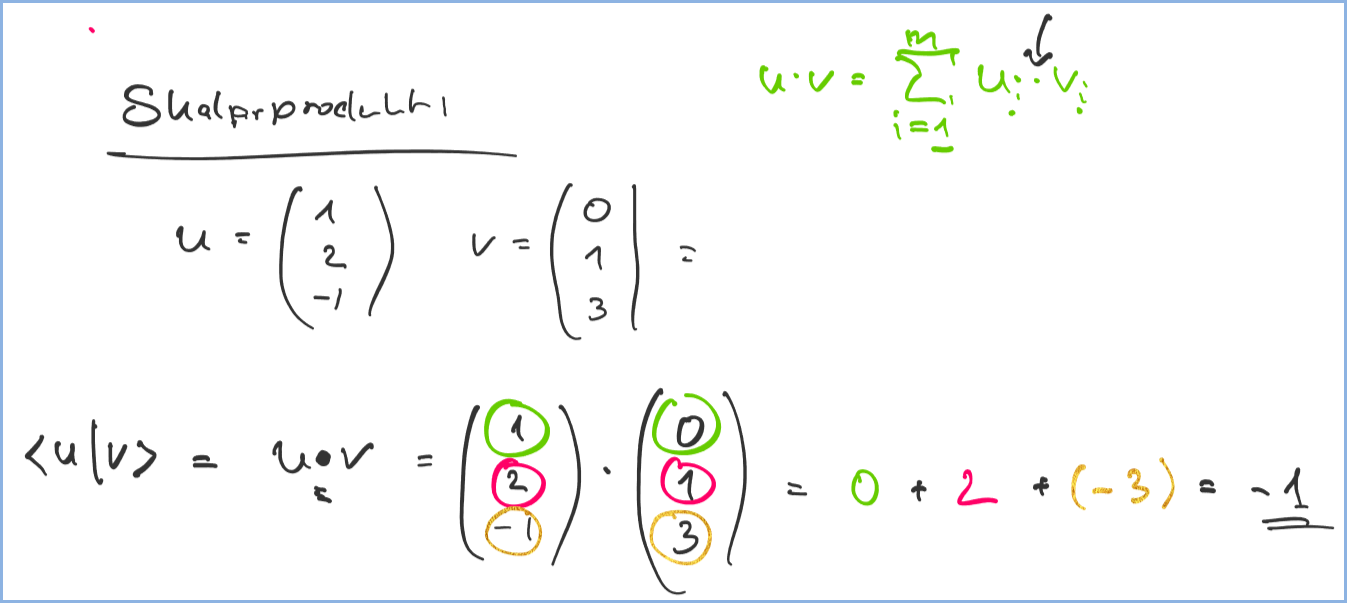 Skalarprodukt
u·v = ∑_{i=1}^{m} u_i · v_i
u = (1 2 -1) v = (0 1 3) =
<u|v> = u·v = (1 2 -1) · (0 1 3) = 0 + 2 + (-3) = -1